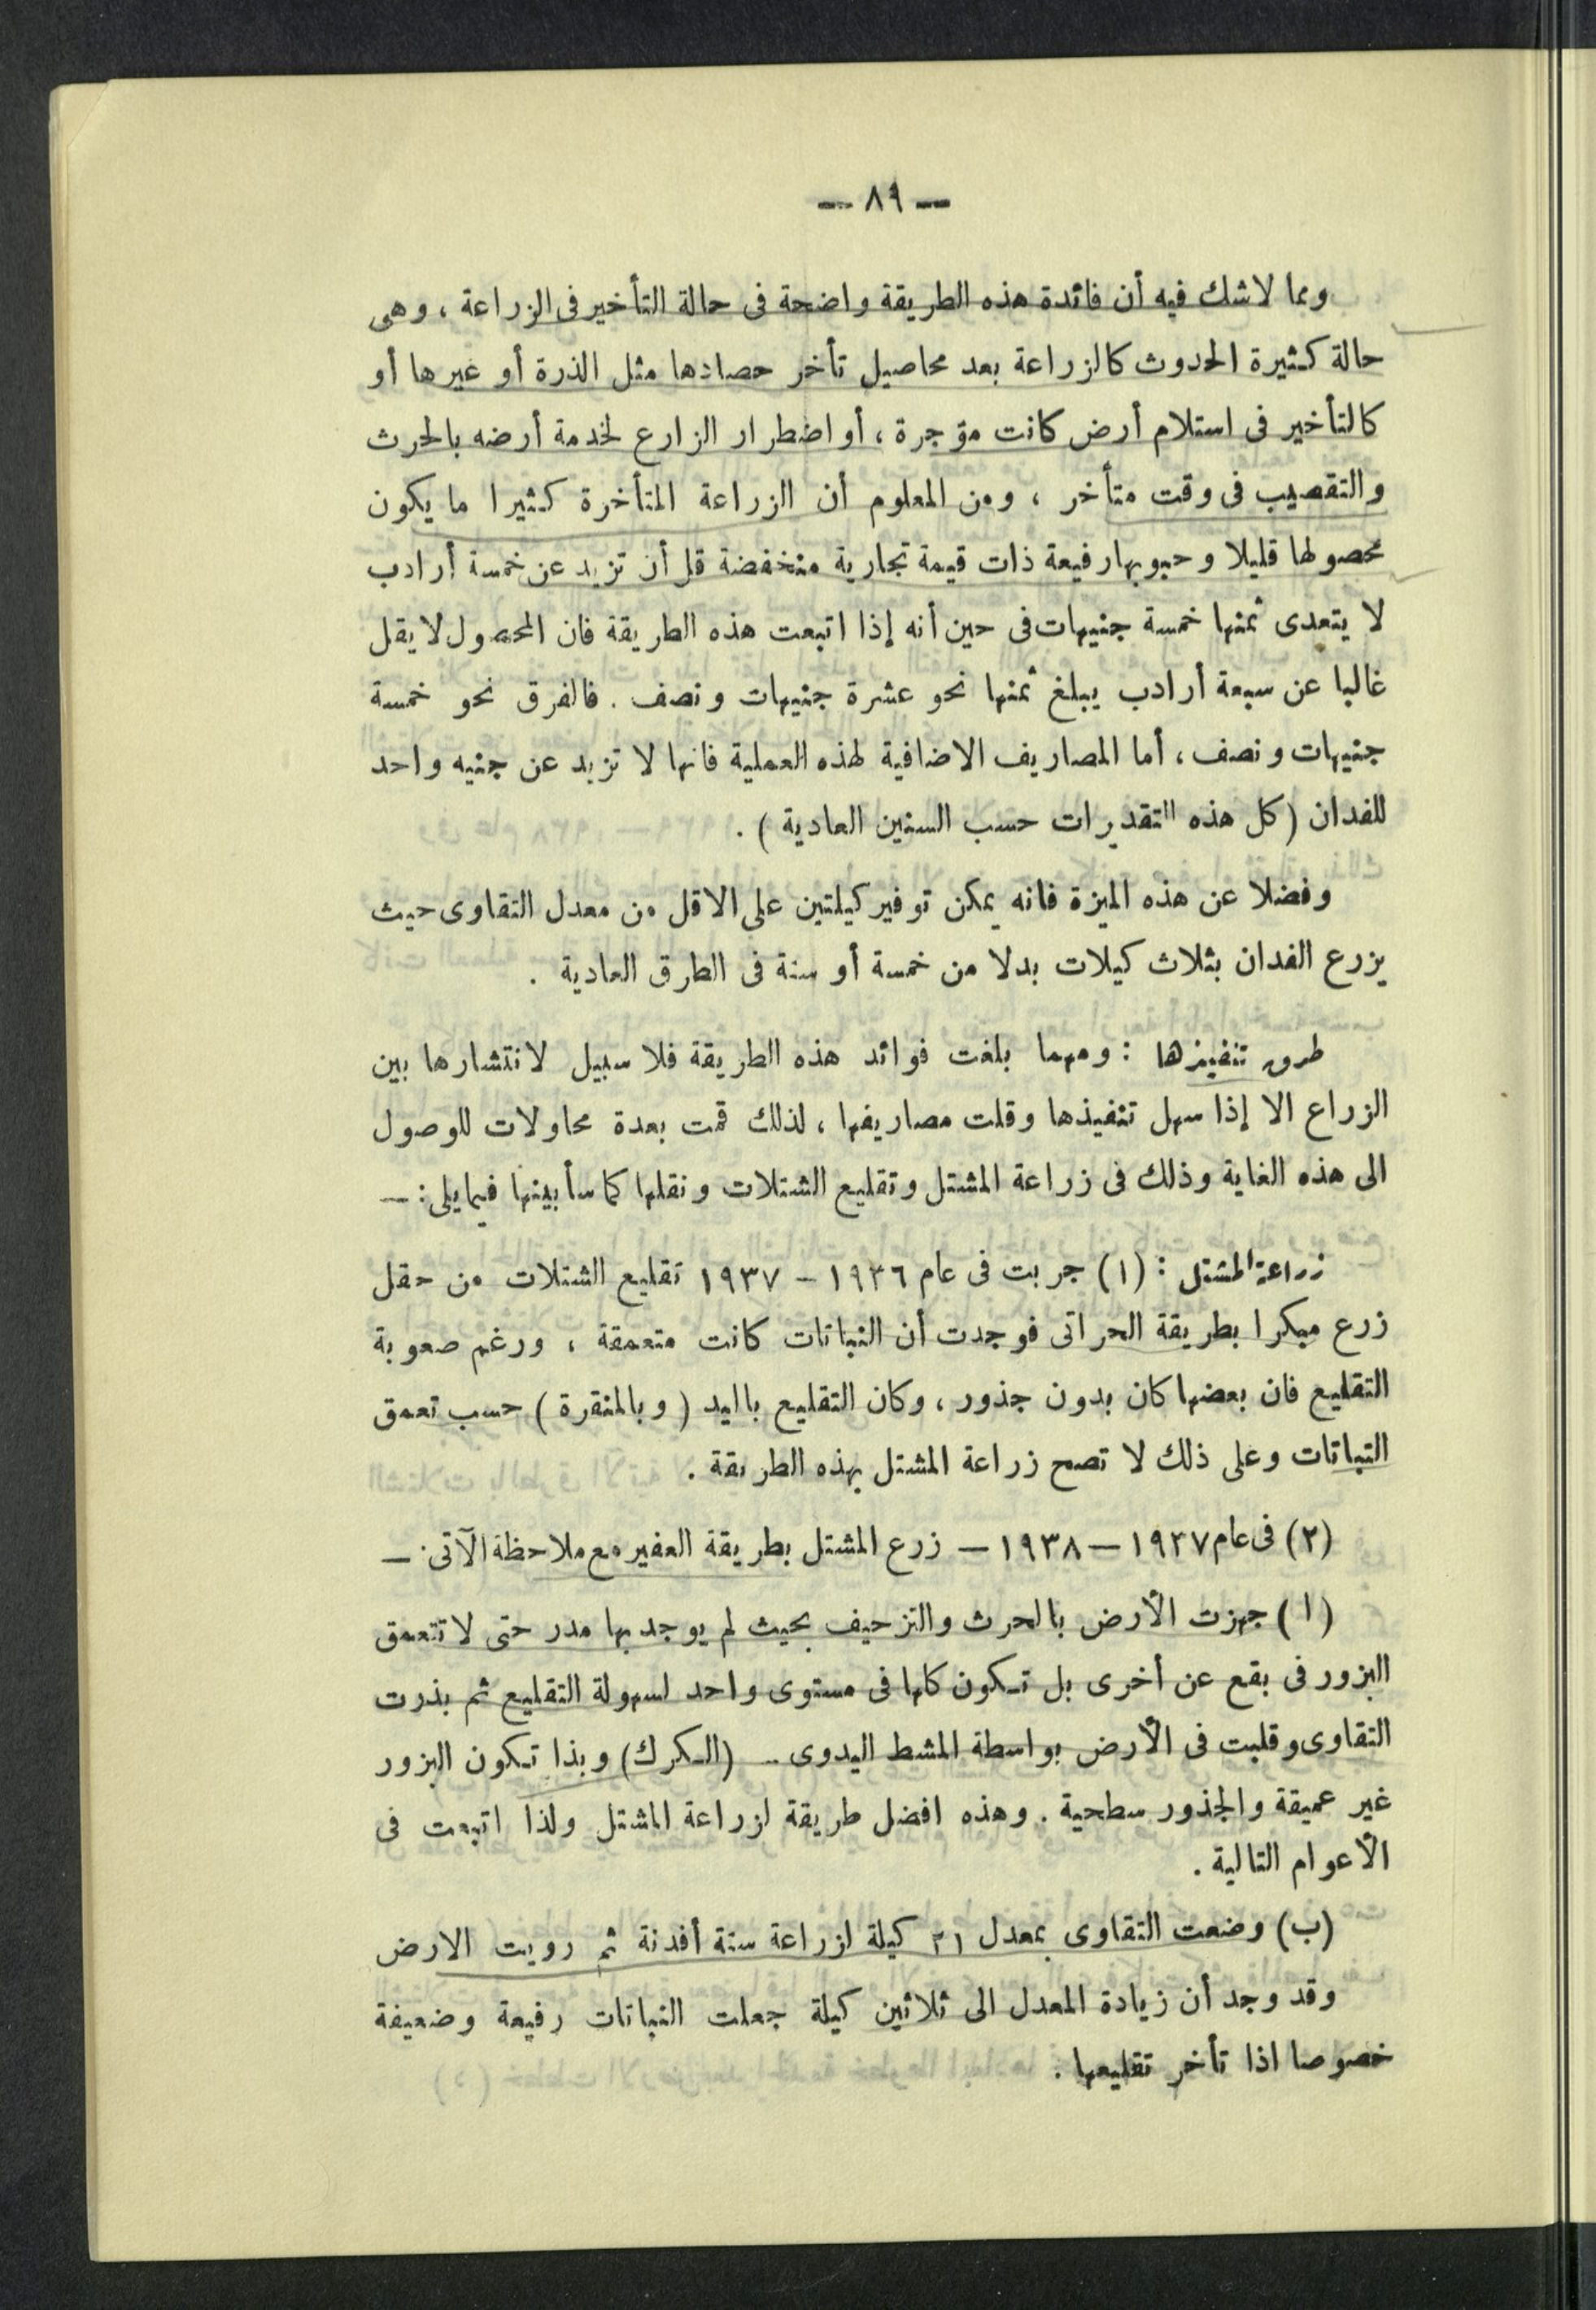 — ٨٩ —
ومما لاشك فيه أن فائدة هذه الطريقة واضحة فى حالة التأخير فى الزراعة ، وهى
حالة كثيرة الحدوث كالزراعة بعد محاصيل تأخر حصادها مثل الذرة أو غيرها أو
كالتأخير فى استلام أرض كانت مؤجرة ، أو اضطرار الزارع لخدمة أرضه بالحرث
والتقصيب فى وقت متأخر ، ومن المعلوم أن الزراعة المتأخرة كثيرا ما يكون
محصولها قليلا وحبوبها رفيعة ذات قيمة تجارية منخفضة قل أن تزيد عن خمسة أرادب
لا يتعدى ثمنها خمسة جنيهات فى حين أنه إذا اتبعت هذه الطريقة فان المحصول لا يقل
غالبا عن سبعة أرادب يبلغ ثمنها نحو عشرة جنيهات ونصف . فالفرق نحو خمسة
جنيهات ونصف ، أما المصاريف الاضافية لهذه العملية فانها لا تزيد عن جنيه واحد
للفدان ( كل هذه التقديرات حسب السنين العادية ) .
وفضلا عن هذه الميزة فانه يمكن توفير كيلتين على الاقل من معدل التقاوى حيث
يزرع الفدان بثلاث كيلات بدلا من خمسة أو ستة فى الطرق العادية .
طرق تنفيذها : ومهما بلغت فوائد هذه الطريقة فلا سبيل لانتشارها بين
الزراع الا إذا سهل تنفيذها وقلت مصاريفها ، لذلك قمت بعدة محاولات للوصول
الى هذه الغاية وذلك فى زراعة المشتل وتقليع الشتلات ونقلها كما سأبينها فيما يلى : —
زراعة المشتل : (١) جربت فى عام ١٩٣٦ - ١٩٣٧ تقليع الشتلات من حقل
زرع مبكرا بطريقة الحراتى فوجدت أن النباتات كانت متعمقة ، ورغم صعوبة
التقليع فان بعضها كان بدون جذور ، وكان التقليع باليد ( وبالمنقرة ) حسب تعمق
النباتات وعلى ذلك لا تصح زراعة المشتل بهذه الطريقة .
(٢) فى عام ١٩٣٧ — ١٩٣٨ — زرع المشتل بطريقة العفير مع ملاحظة الآتى . —
( ا ) جهزت الأرض بالحرث والتزحيف بحيث لم يوجد بها مدر حتى لا تتعمق
البزور فى بقع عن أخرى بل تكون كلها فى مستوى واحد لسهولة التقليع ثم بذرت
التقاوى وقلبت فى الأرض بواسطة المشط اليدوى - (الكرك) وبذا تكون البزور
غير عميقة والجذور سطحية . وهذه افضل طريقة لزراعة المشتل ولذا اتبعت فى
الأعوام التالية .
(ب) وضعت التقاوى بمعدل ٢١ كيلة لزراعة ستة أفدنة ثم رويت الارض
وقد وجد أن زيادة المعدل الى ثلاثين كيلة جعلت النباتات رفيعة وضعيفة
خصوصا اذا تأخر تقليعها .